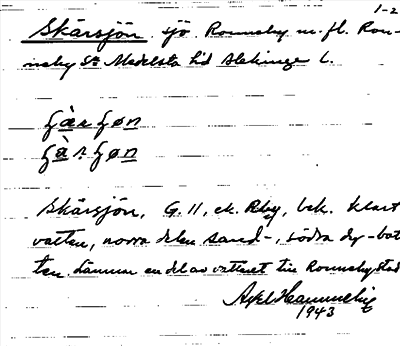 1-2
Skärsjön sjö Ronneby m. fl. Ron-
neby Sn Medelsta hd Blekinge l.
ʃæ̀rʃøn
ʃæ̀rʃøn
Skärsjön, G. 11, ek. Rby, bek. klart
vatten, norra delen sand-, södra dy-bot
ten. Lämnar en del av vattnet till Ronneby stad
Axel Hammelig
1943